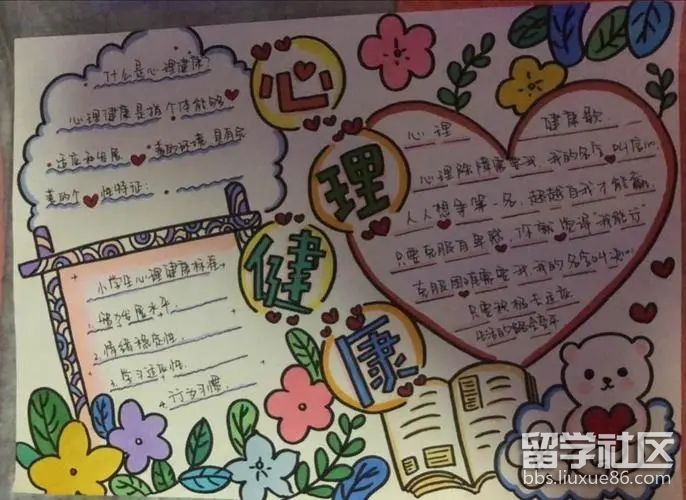 心理健康
什么是心理健康?
心理健康是指个体能够
适应和发展 美的环境 具有完
美的个 性特征:
小学生心理健康标准
1.智力发展水平
2.情绪稳定性
3.学习适应性
4.行为习惯
心理 健康歌
心理除障需要我,我的名字叫信心
人人想争第一名,超越自我才能赢
只要克服自卑感,你就 "我能行"
克服困难需要我,我的名字叫
只要积极去适应
生活的路
留学社区
bbs.liuxue86.com